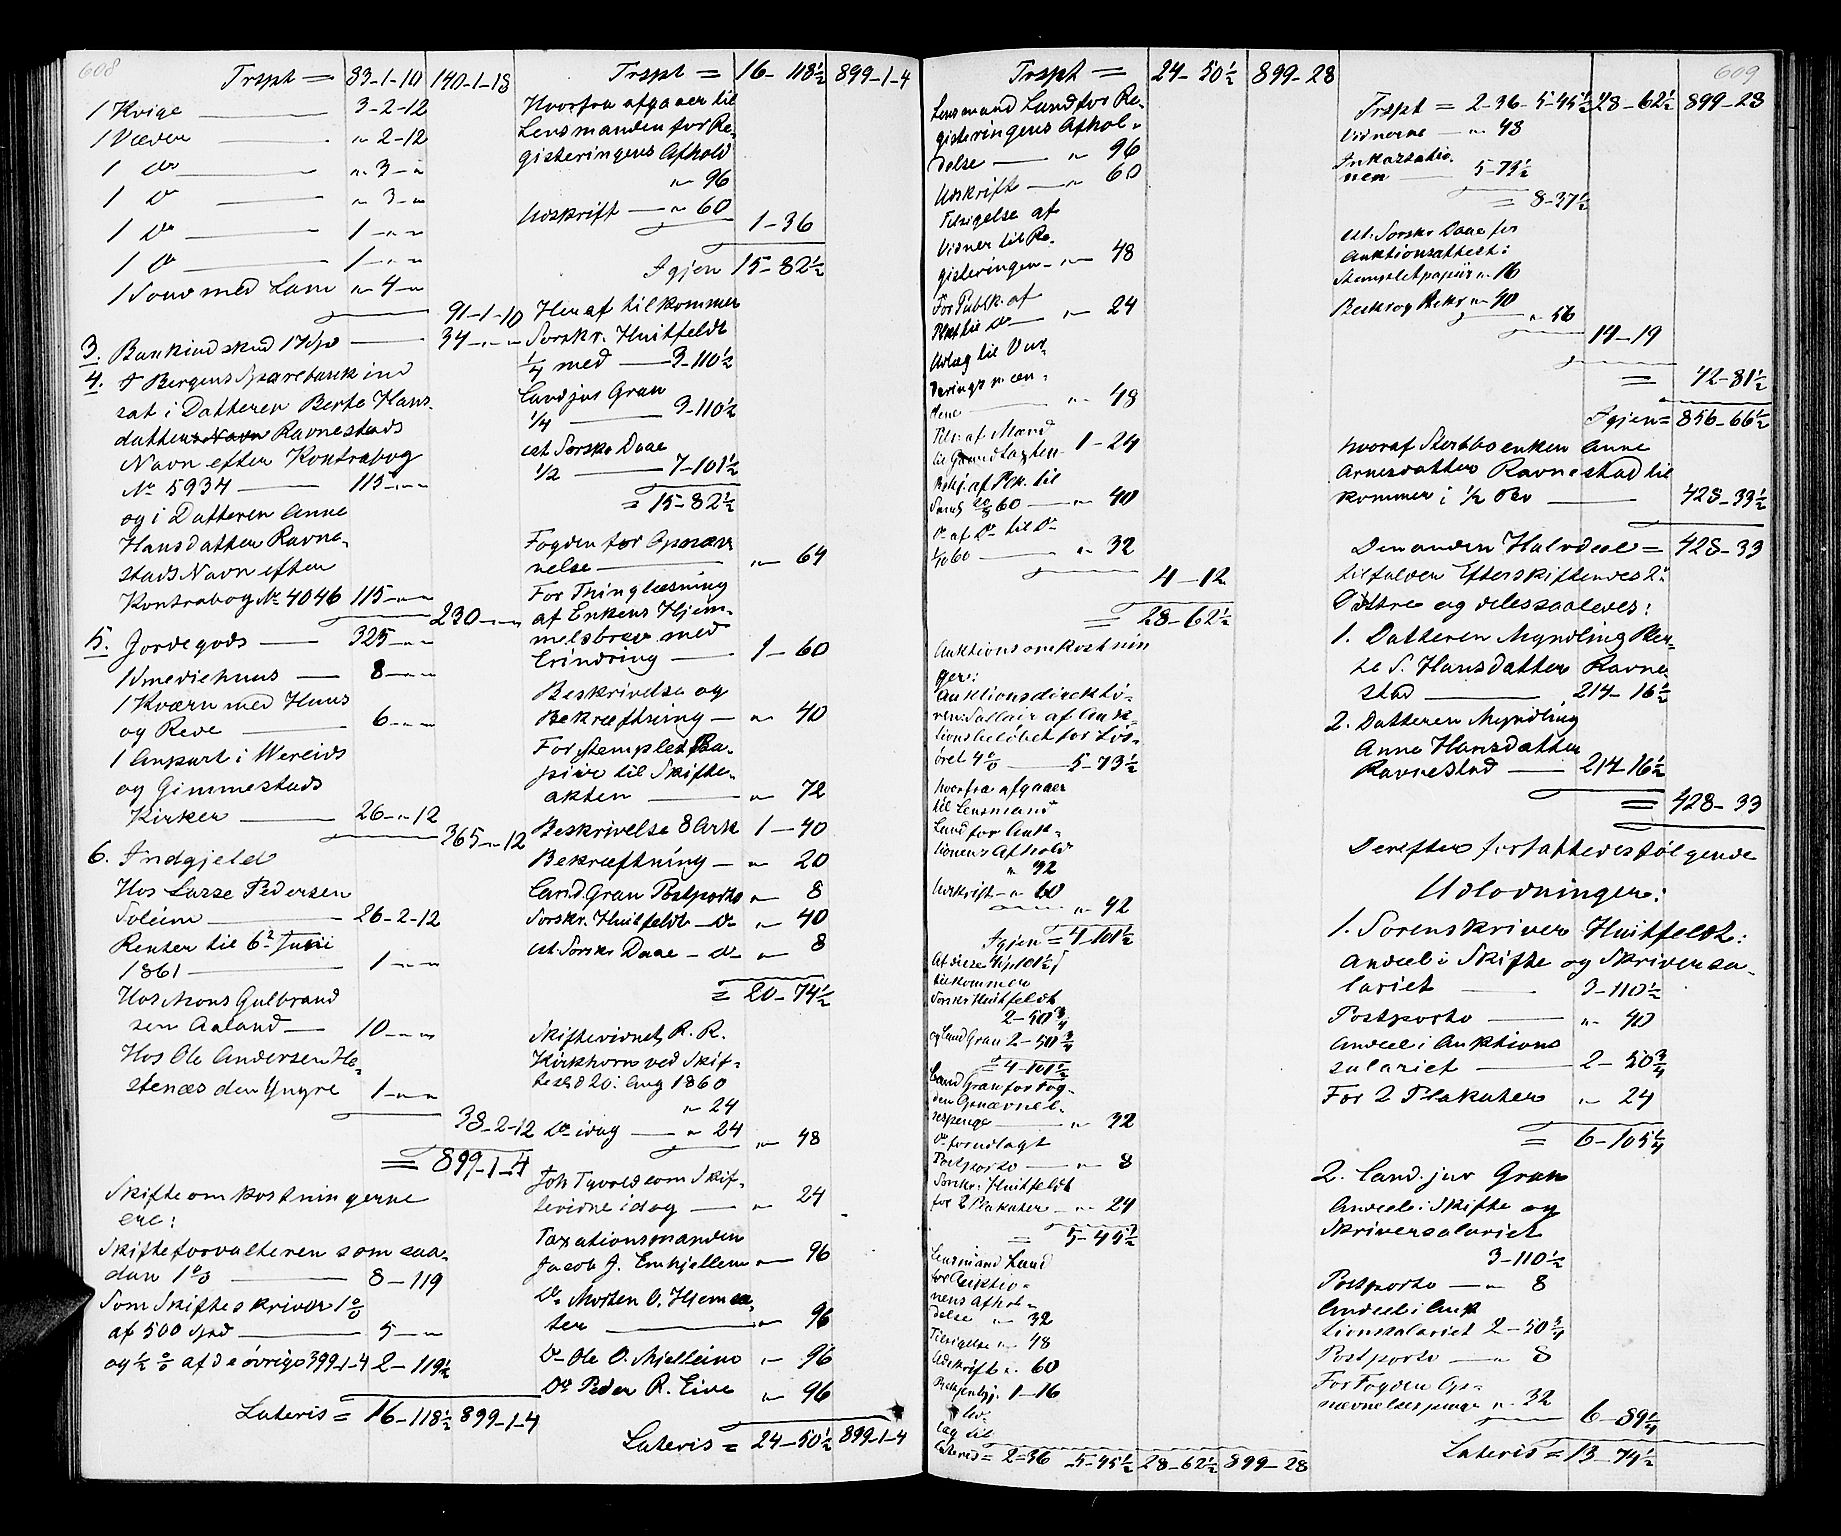 608
Trspt = 83-1-10 140-1-18
1 Kvige — 3-2-12
1 Væder — " 2-12
1 do — " 3-"
1 do — " 3-"
1 do — 1-"-"
1 do — 1-"-"
1 Souv med Lam " 4-"
91-1-10
3. Bankindskud 17 Spd — 34-"-"
4. I Bergens Sparebank ind
sat i Datteren Berte Hans-
datters Navn Ravnestads
Navn efter Kontrabog
No 5934 — 115-"-"
og i Datteren Anne
Hansdatter Ravne-
stads Navn efter
Kontrabog No 4046 115-"-"
230-"-"
5. Jordegods — 325-"-"
1 Smediehuus — 8-"-"
1 Kværn med Huus
og Reve — 6-"-"
1 Anpart i Wereids
og Gimmestads
Kirker — 26-"-12
365-"-12
6. Indgjeld
Hos Lasse Pedersen
Soleim — 26-2-12
Renter til 6te Juni
1861 — 1-"-"
Hos Mons Gulbrand
sen Aaland — 10-"-"
Hos Ole Andersen He-
stenæs den Yngre 1-"-"
38-2-12
= 899-1-4
Skifteomkostningerne
ere:
Skifteforvalteren som saa-
dan 1 % — 8-119
Som Skifteskriver 1 %
af 500 Spd — 5-"
og ½ % af de øvrige 399-1-4 2-119½
Lateris = 16-118½ 899-1-4
Trspt = 16-118½ 899-1-4
Hvorfra afgaaer til
Lensmanden for Re-
gisteringens Afhold
" 96
Udskrift — " 60
1-36
Igjen 15-82½
Heraf tilkommer
Sorskr. Huitfeldt
¼ med — 3-110½
Cand jur Gran
¼ — 3-110½
cst Sorskr Daae
½ — 7-101½
= 15-82½
Fogden for Opnæv
nelse — " 64
For Thinglæsning
af Enkens Hjem-
melsbrev med
Erindring — 1-60
Beskrivelse og
Bekræftning — " 40
For stemplet Pa-
piir til Skifte-
akten — " 72
Beskrivelse 8 Ark 1-40
Bekræftning — " 20
Cand. Gran Postporto " 8
Sorskr. Huitfeldt — do " 40
cst. Sorskr Daae — do " 8
= 20-74½
Skiftevidnet R. R.
Kirkhorn ved Skif-
tet d 20. Aug 1860
" 24
Do idag — " 24
" 48
Joh Tyvold som Skif-
tevidne idag — " 24
Taxationsmanden
Jacob J. Emhjellem " 96
Do Morten O. Hjemse-
ter — " 96
Do Ole O. Mjelleim " 96
Do Peder R. Eive " 96
Lateris = 24-50½ 899-1-4
Trspt = 24-50½ 899-28
Lensmand Lund for Re-
gisteringens Afhol-
delse — " 96
Udskrift — " 60
Tilsigelse af
Vidner til Re-
gisteringen " 48
For Publk. af
Plkt til do — " 24
Udlæg til Vur-
deringsmæn-
dene — " 48
Tiln. af Mænd
til Grundtaxten 1-24
Bekj. af Plk. til
Saml 20/8 60 — " 40
Do af Do til Do
1/10 60 — " 32
4-12
= 28-62½
Auktionsomkostnin
ger:
Auktionsdirektø-
rens Sallair af Auk-
tionsbeløbet for Løs-
øret 4 % — 5-73½
hvorfra afgaaer
til Lensmand
Lund for Auk-
tionens Afhold
" 32
Udskrift " 60
" 92
Igjen = 4-101½
Af disse 4 Sp 101½ ſ
tilkommer
Sorskr Huitfeldt
2-50¾
og Cand Gran 2-50¾
= 4-101½
Cand Gran for Fog-
den Opnævnel-
sespenge — " 32
Do for udlagt
Postporto — " 8
Sorskr. Huitfeldt
for 2 Plakater " 24
= 5-45½
Lensmand Lund
for Auktio-
nens Afhol-
delse " 32
Tilsigelse " 48
Udskrift " 60
Bekjentgj. 1-16
Lateris = 2-36 5-45½ 28-62½ 899-28
609
Trspt = 2-36 5-45½ 28-62½ 899-28
Vidnerne — " 48
Inkassatio-
nen 5-73½
= 8-37½
cst. Sorskr Daae for
Auktionsattest:
Stemplet papiir " 16
Beskr og Bekr " 40
" 56
14-19
= 42-81½
Igjen = 856-66½
hvoraf Sterbboenken Anne
Arnesdatter Ravnestad til
kommer i ½ Bo — 428-33½
Den anden Halvdeel = 428-33
tilfalder Efterskiftendes 2de
Døttre og deles saaledes:
1. Datteren Myndling Ber-
te S. Hansdatter Ravne
stad — 214-16½
2. Datteren Myndling
Anne Hansdatter
Ravnestad — 214-16½
= 428-33
Derefter forfattedes følgende
Udlodninger:
1. Sorenskriver Huitfeldt:
Andeel i Skifte og Skriversa-
lariet — 3-110½
Postporto — " 40
Andeel i Auktions
salariet — 2-50¾
For 2 Plakater " 24
= 6-105¼
2. Cand. jur Gran
Andeel i Skifte og
Skriversalariet
3-110½
Postporto — " 8
Andeel i Auk
tionssalariet 2-50¾
Postporto — " 8
For Fogden Op-
nævnelsespenge " 32
6-89¼
Lateris = 13-74½